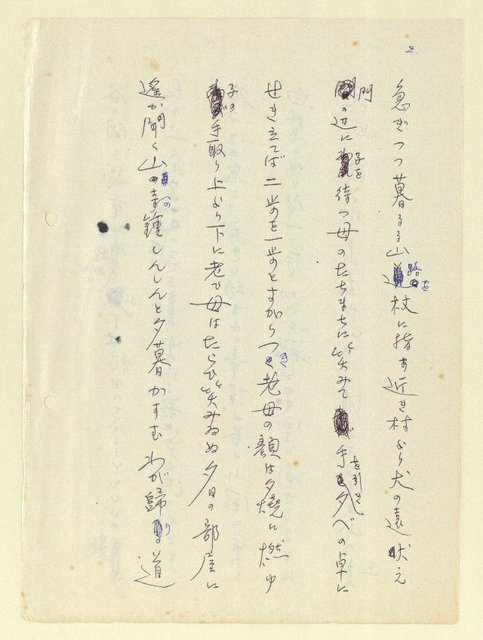 2
急ぎつつ暮るる山路を杖に指す近き村より犬の遠吠え
門の辺に子を待つ母のたちまちに笑みて手を引きぬ夕べの卓に
せき立てば二歩を一歩とすがりつき老母の顔は夕燒に燃ゆ
子の手取り上より下に老ひ母はたらひ笑みゐぬ夕日の部屋に
遙か聞く山の寺の鐘しんしんと夕暮かすむわが歸り道